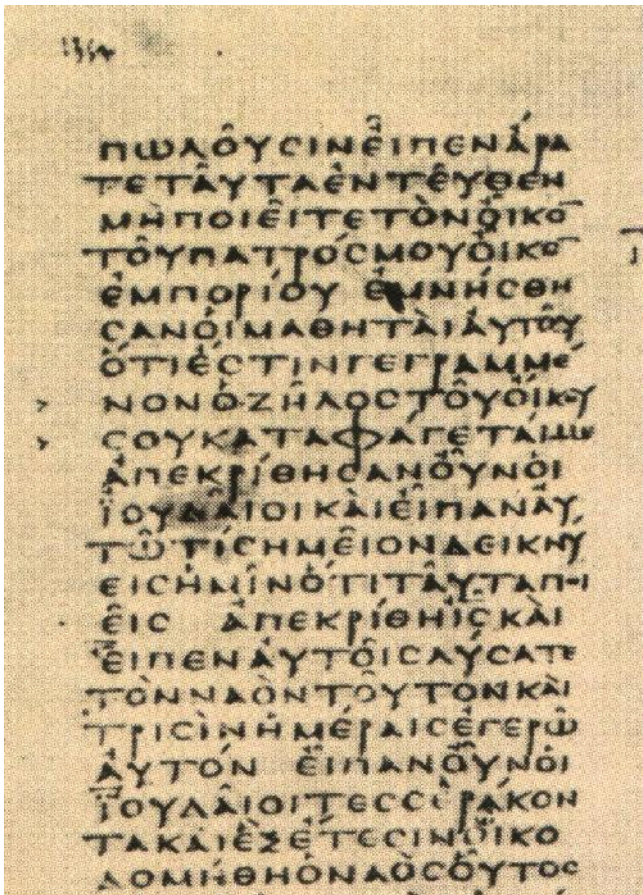 ΠΩΛΟΥϹΙΝΕΙΠΕΝΑΡΑ
ΤΕΤΑΥΤΑΕΝΤΕΥΘΕΝ
ΜΗΠΟΙΕΙΤΕΤΟΝΟΙΚΟ̅
ΤΟΥΠΑΤΡΟϹΜΟΥΟΙΚΟ̅
ΕΜΠΟΡΙΟΥ ΕΜΝΗϹΘΗ
ϹΑΝΟΙΜΑΘΗΤΑΙΑΥΤΟΥ
ΟΤΙΕϹΤΙΝΓΕΓΡΑΜΜΕ
ΝΟΝΟΖΗΛΟϹΤΟΥΟΙΚΟΥ
ϹΟΥΚΑΤΑΦΑΓΕΤΑΙΜΕ
ΑΠΕΚΡΙΘΗϹΑΝΟΥΝΟΙ
ΪΟΥΔΑΙΟΙΚΑΙΕΙΠΑΝΑΥ
ΤΩΤΙϹΗΜΕΙΟΝΔΕΙΚΝΥ
ΕΙϹΗΜΙΝΟΤΙΤΑΥΤΑΠΟΙ
ΕΙϹ ΑΠΕΚΡΙΘΗΙ̅Ϲ̅ΚΑΙ
ΕΙΠΕΝΑΥΤΟΙϹΛΥϹΑΤΕ
ΤΟΝΝΑΟΝΤΟΥΤΟΝΚΑΙ
ΤΡΙϹΙΝΗΜΕΡΑΙϹΕΓΕΡΩ
ΑΥΤΟΝ ΕΙΠΑΝΟΥΝΟΙ
ΪΟΥΔΑΙΟΙΤΕϹϹΕΡΑΚΟΝ
ΤΑΚΑΙΕΞΕΤΕϹΙΝΟΙΚΟ
ΔΟΜΗΘΗΟΝΑΟϹΟΥΤΟϹ